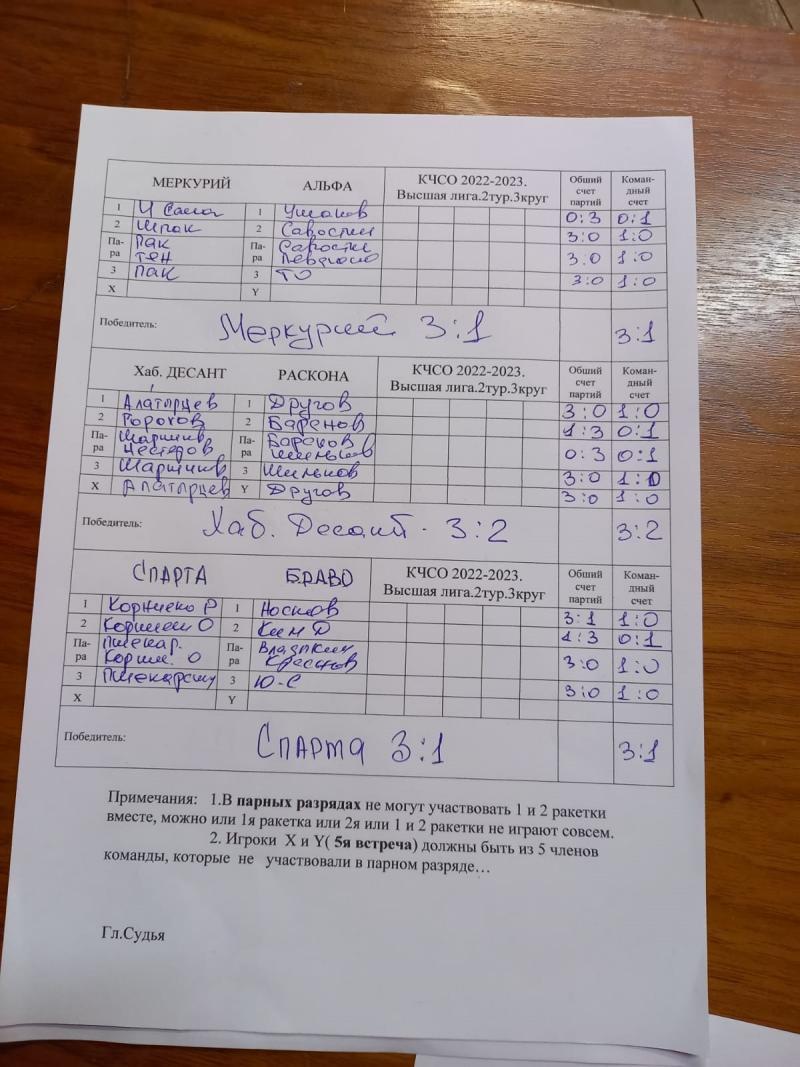 МЕРКУРИЙ АЛЬФА КЧСО 2022-2023. Высшая лига.2тур.3круг Общий счет партий Коман-дный счет
1 1 Ушаков 0:3 0:1
2 Шпак 2 3:0 1:0
Па-ра Пак Тен Па-ра 3:0 1:0
3 Пак 3 ТО 3:0 1:0
X Y
Победитель: Меркурий 3:1 3:1
Хаб. ДЕСАНТ РАСКОНА КЧСО 2022-2023. Высшая лига.2тур.3круг Общий счет партий Коман-дный счет
1 Алатырцев 1 Другов 3:0 1:0
2 2 Баренов 1:3 0:1
Па-ра Па-ра 0:3 0:1
3 3 Шильков 3:0 1:0
X Алатырцев Y Другов 3:0 1:0
Победитель: Хаб. Десант - 3:2 3:2
СПАРТА БРАВО КЧСО 2022-2023. Высшая лига.2тур.3круг Общий счет партий Коман-дный счет
1 Корниенко Р 1 Носков 3:1 1:0
2 2 Ким Д 1:3 0:1
Па-ра Па-ра 3:0 1:0
3 3 Ю-С 3:0 1:0
X Y
Победитель: СПАРТА 3:1 3:1
Примечания: 1.В парных разрядах не могут участвовать 1 и 2 ракетки
вместе, можно или 1я ракетка или 2я или 1 и 2 ракетки не играют совсем.
2. Игроки X и Y( 5я встреча) должны быть из 5 членов
команды, которые не участвовали в парном разряде…
Гл.Судья